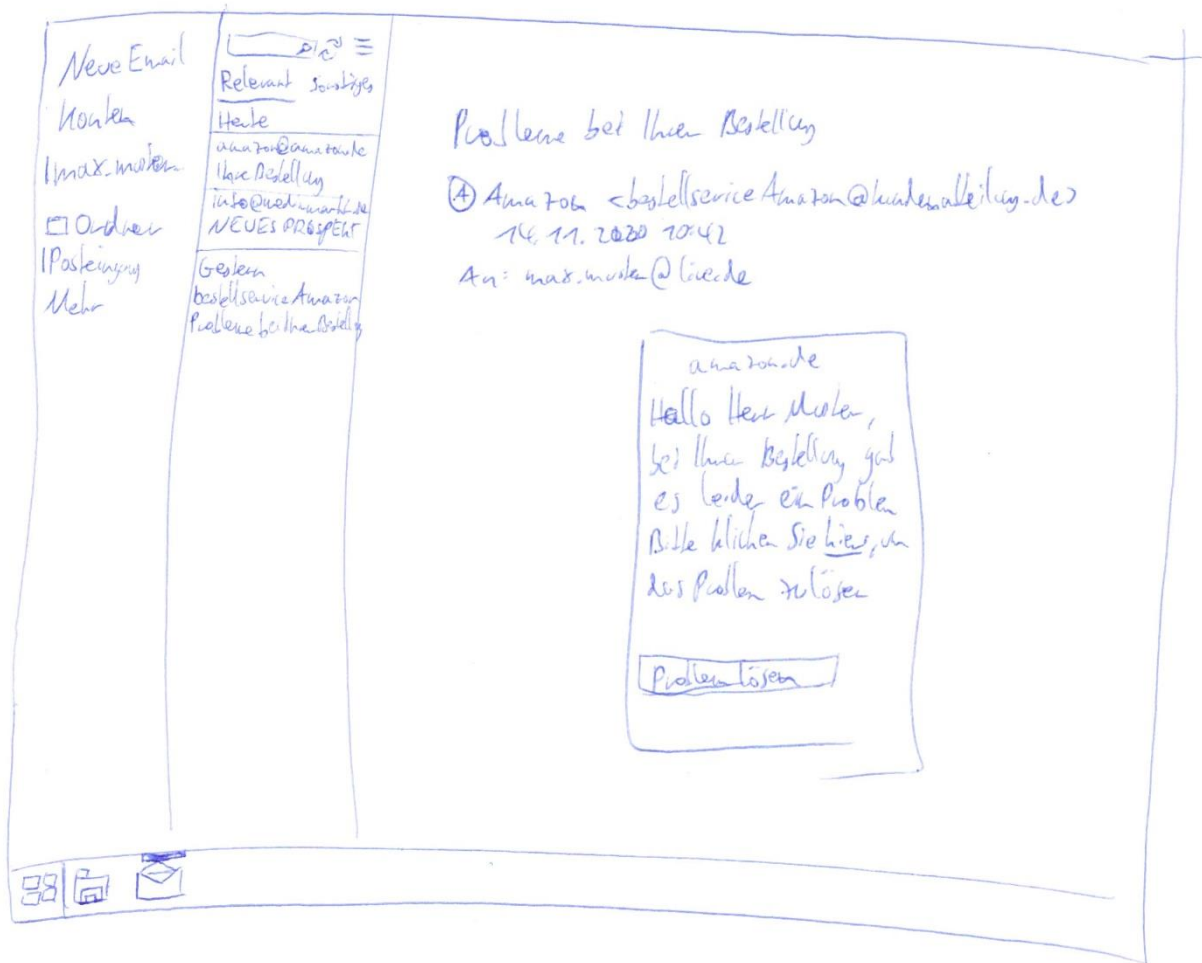 Neue Email
Konten
max.muster
Ordner
Posteingang
Mehr
Relevant Sonstiges
Heute
amazon@amazon.de
Ihre Bestellung
info@mediamarkt.de
NEUES PROSPEKT
Gestern
bestellservice Amazon
Probleme bei Ihrer Bestellg
Probleme bei Ihrer Bestellung
A Amazon <bestellserviceAmazon@kundenabteilung.de>
14.11.2020 10:42
An: max.muster@live.de
amazon.de
Hallo Herr Muster,
bei Ihrer Bestellung gab
es leider ein Problem
Bitte klicken Sie hier, um
das Problem zu lösen
Problem lösen